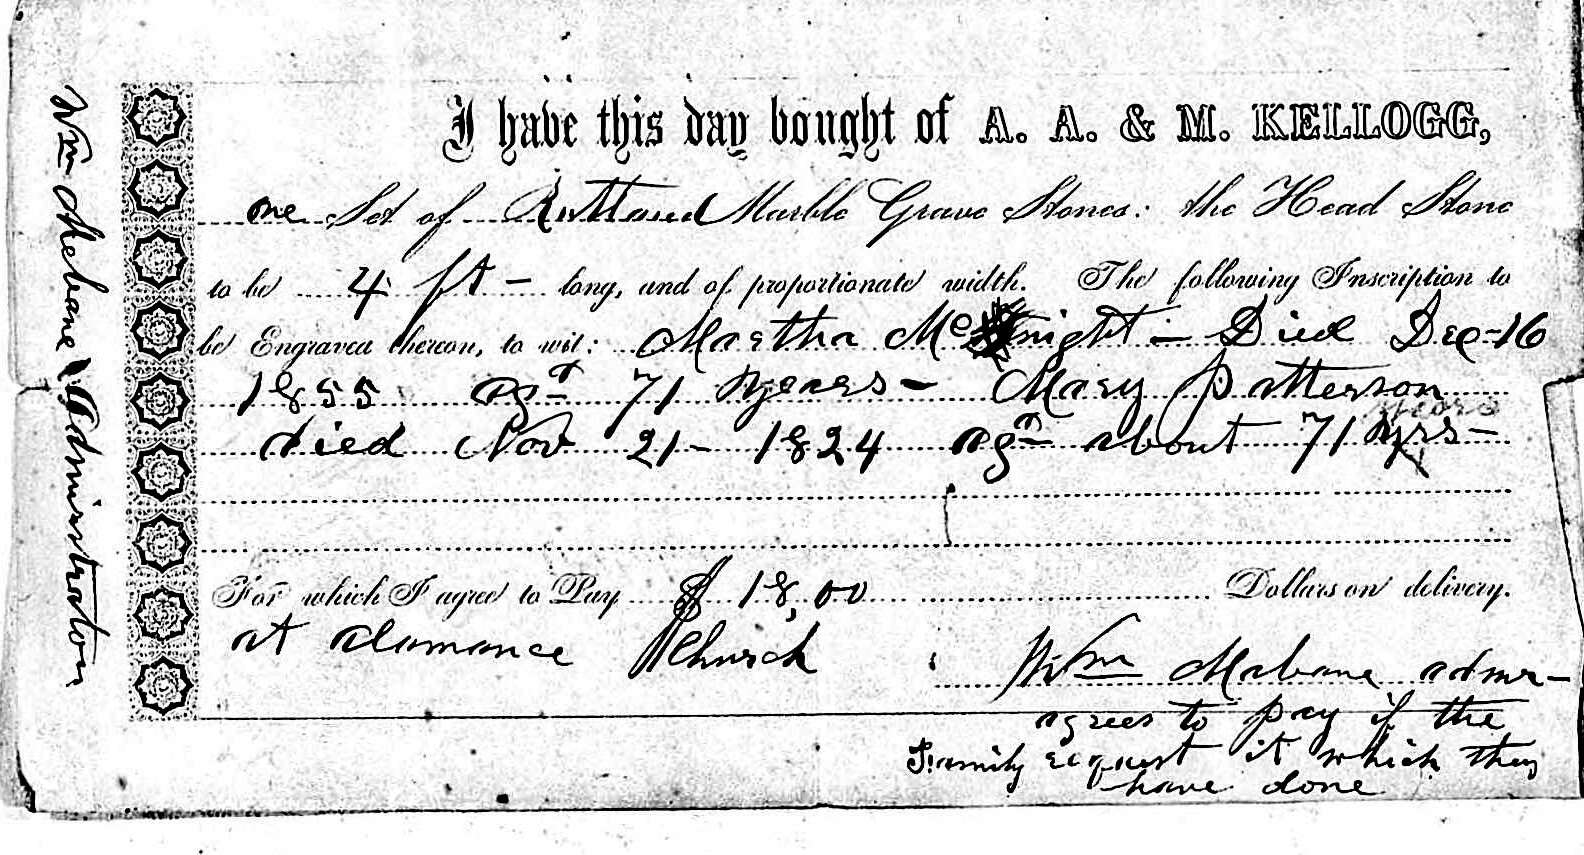 I have this day bought of A. A. & M. KELLOGG,
one Set of Rutland Marble Grave Stones: the Head Stone
to be 4 ft - long, and of proportionate width. The following Inscription to
be Engraved thereon, to wit: Martha McKnight - Died Dec-16
1855 agd 71 years - Mary Patterson
years
died Nov 21 - 1824 agd about 71 yrs -
For which I agree to Pay $ 18,00 Dollars on delivery.
at Alamance Church
Wm Mebane admr -
agrees to pay if the
Family request it which they
have done
Wm Mebane Administrator